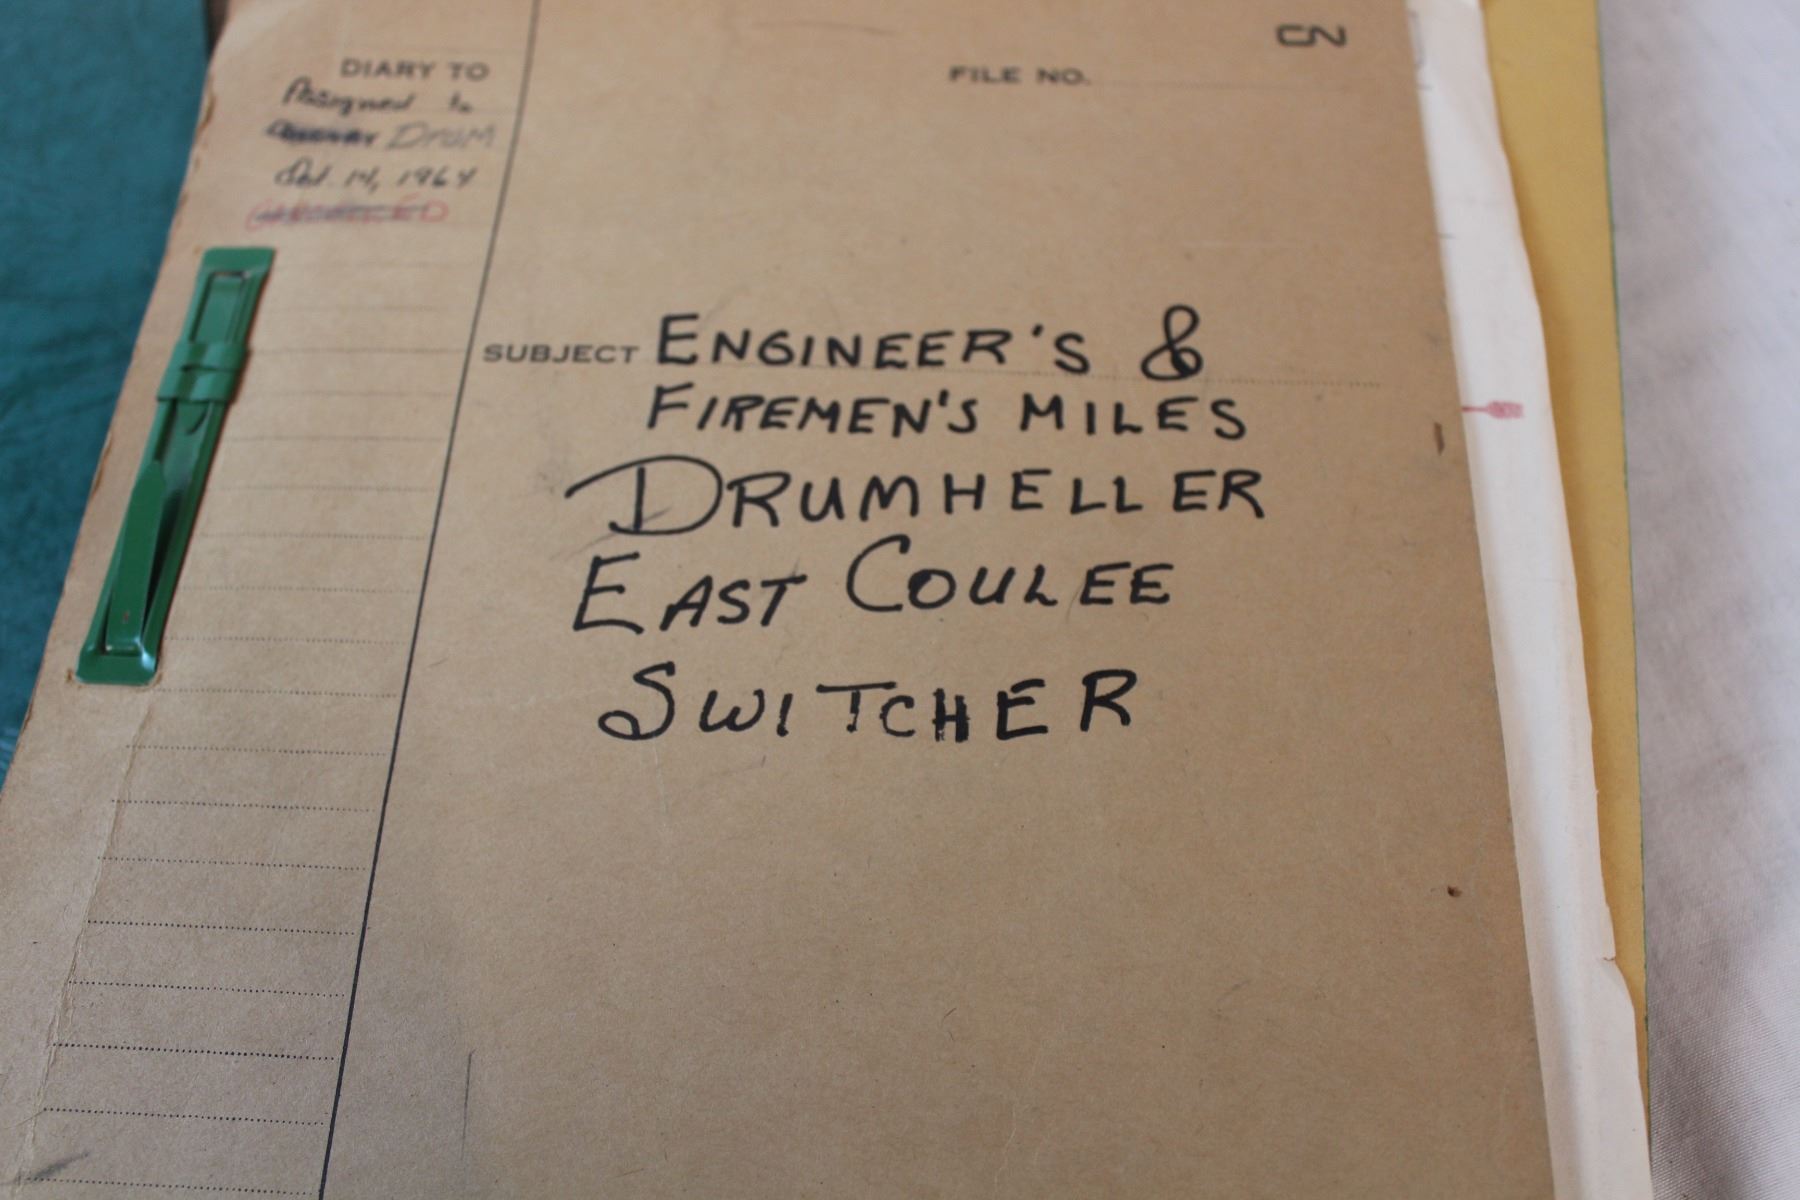 CN
DIARY TO
FILE NO.
Assigned to
DRUM
Oct. 14, 1964
SUBJECT ENGINEER'S &
FIREMEN'S MILES
DRUMHELLER
EAST COULEE
SWITCHER